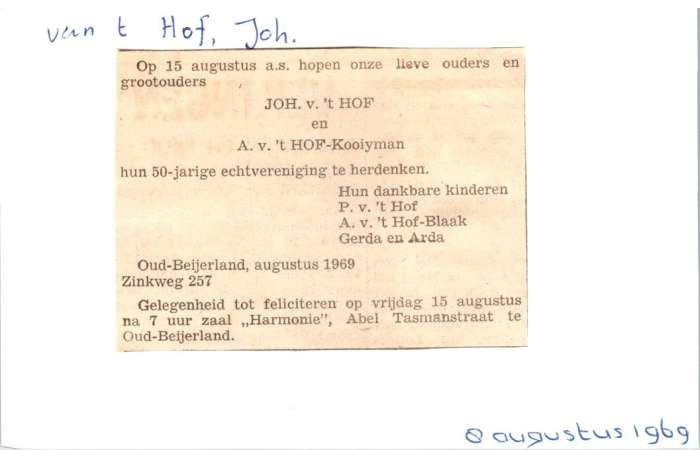 van t Hof, Joh.
Op 15 augustus a.s. hopen onze lieve ouders en
grootouders
JOH. v. 't HOF
en
A. v. 't HOF-Kooiyman
hun 50-jarige echtvereniging te herdenken.
Hun dankbare kinderen
P. v. 't Hof
A. v. 't Hof-Blaak
Gerda en Arda
Oud-Beijerland, augustus 1969
Zinkweg 257
Gelegenheid tot feliciteren op vrijdag 15 augustus
na 7 uur zaal „Harmonie”, Abel Tasmanstraat te
Oud-Beijerland.
8 augustus 1969